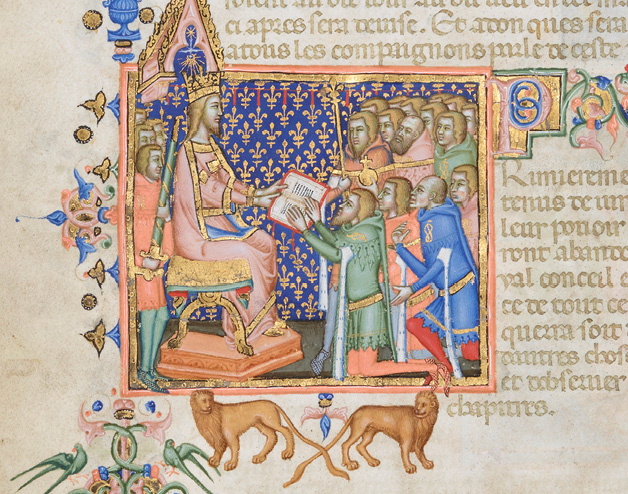 ci apres sera deuise. Et adonques sera
a tous les compaignons de ceste
P
Rimiereme
tenus de
leur
ront abando
yal conceil e
ce de tout ce
querra soit
autres chos
et obseruer
chapitres.